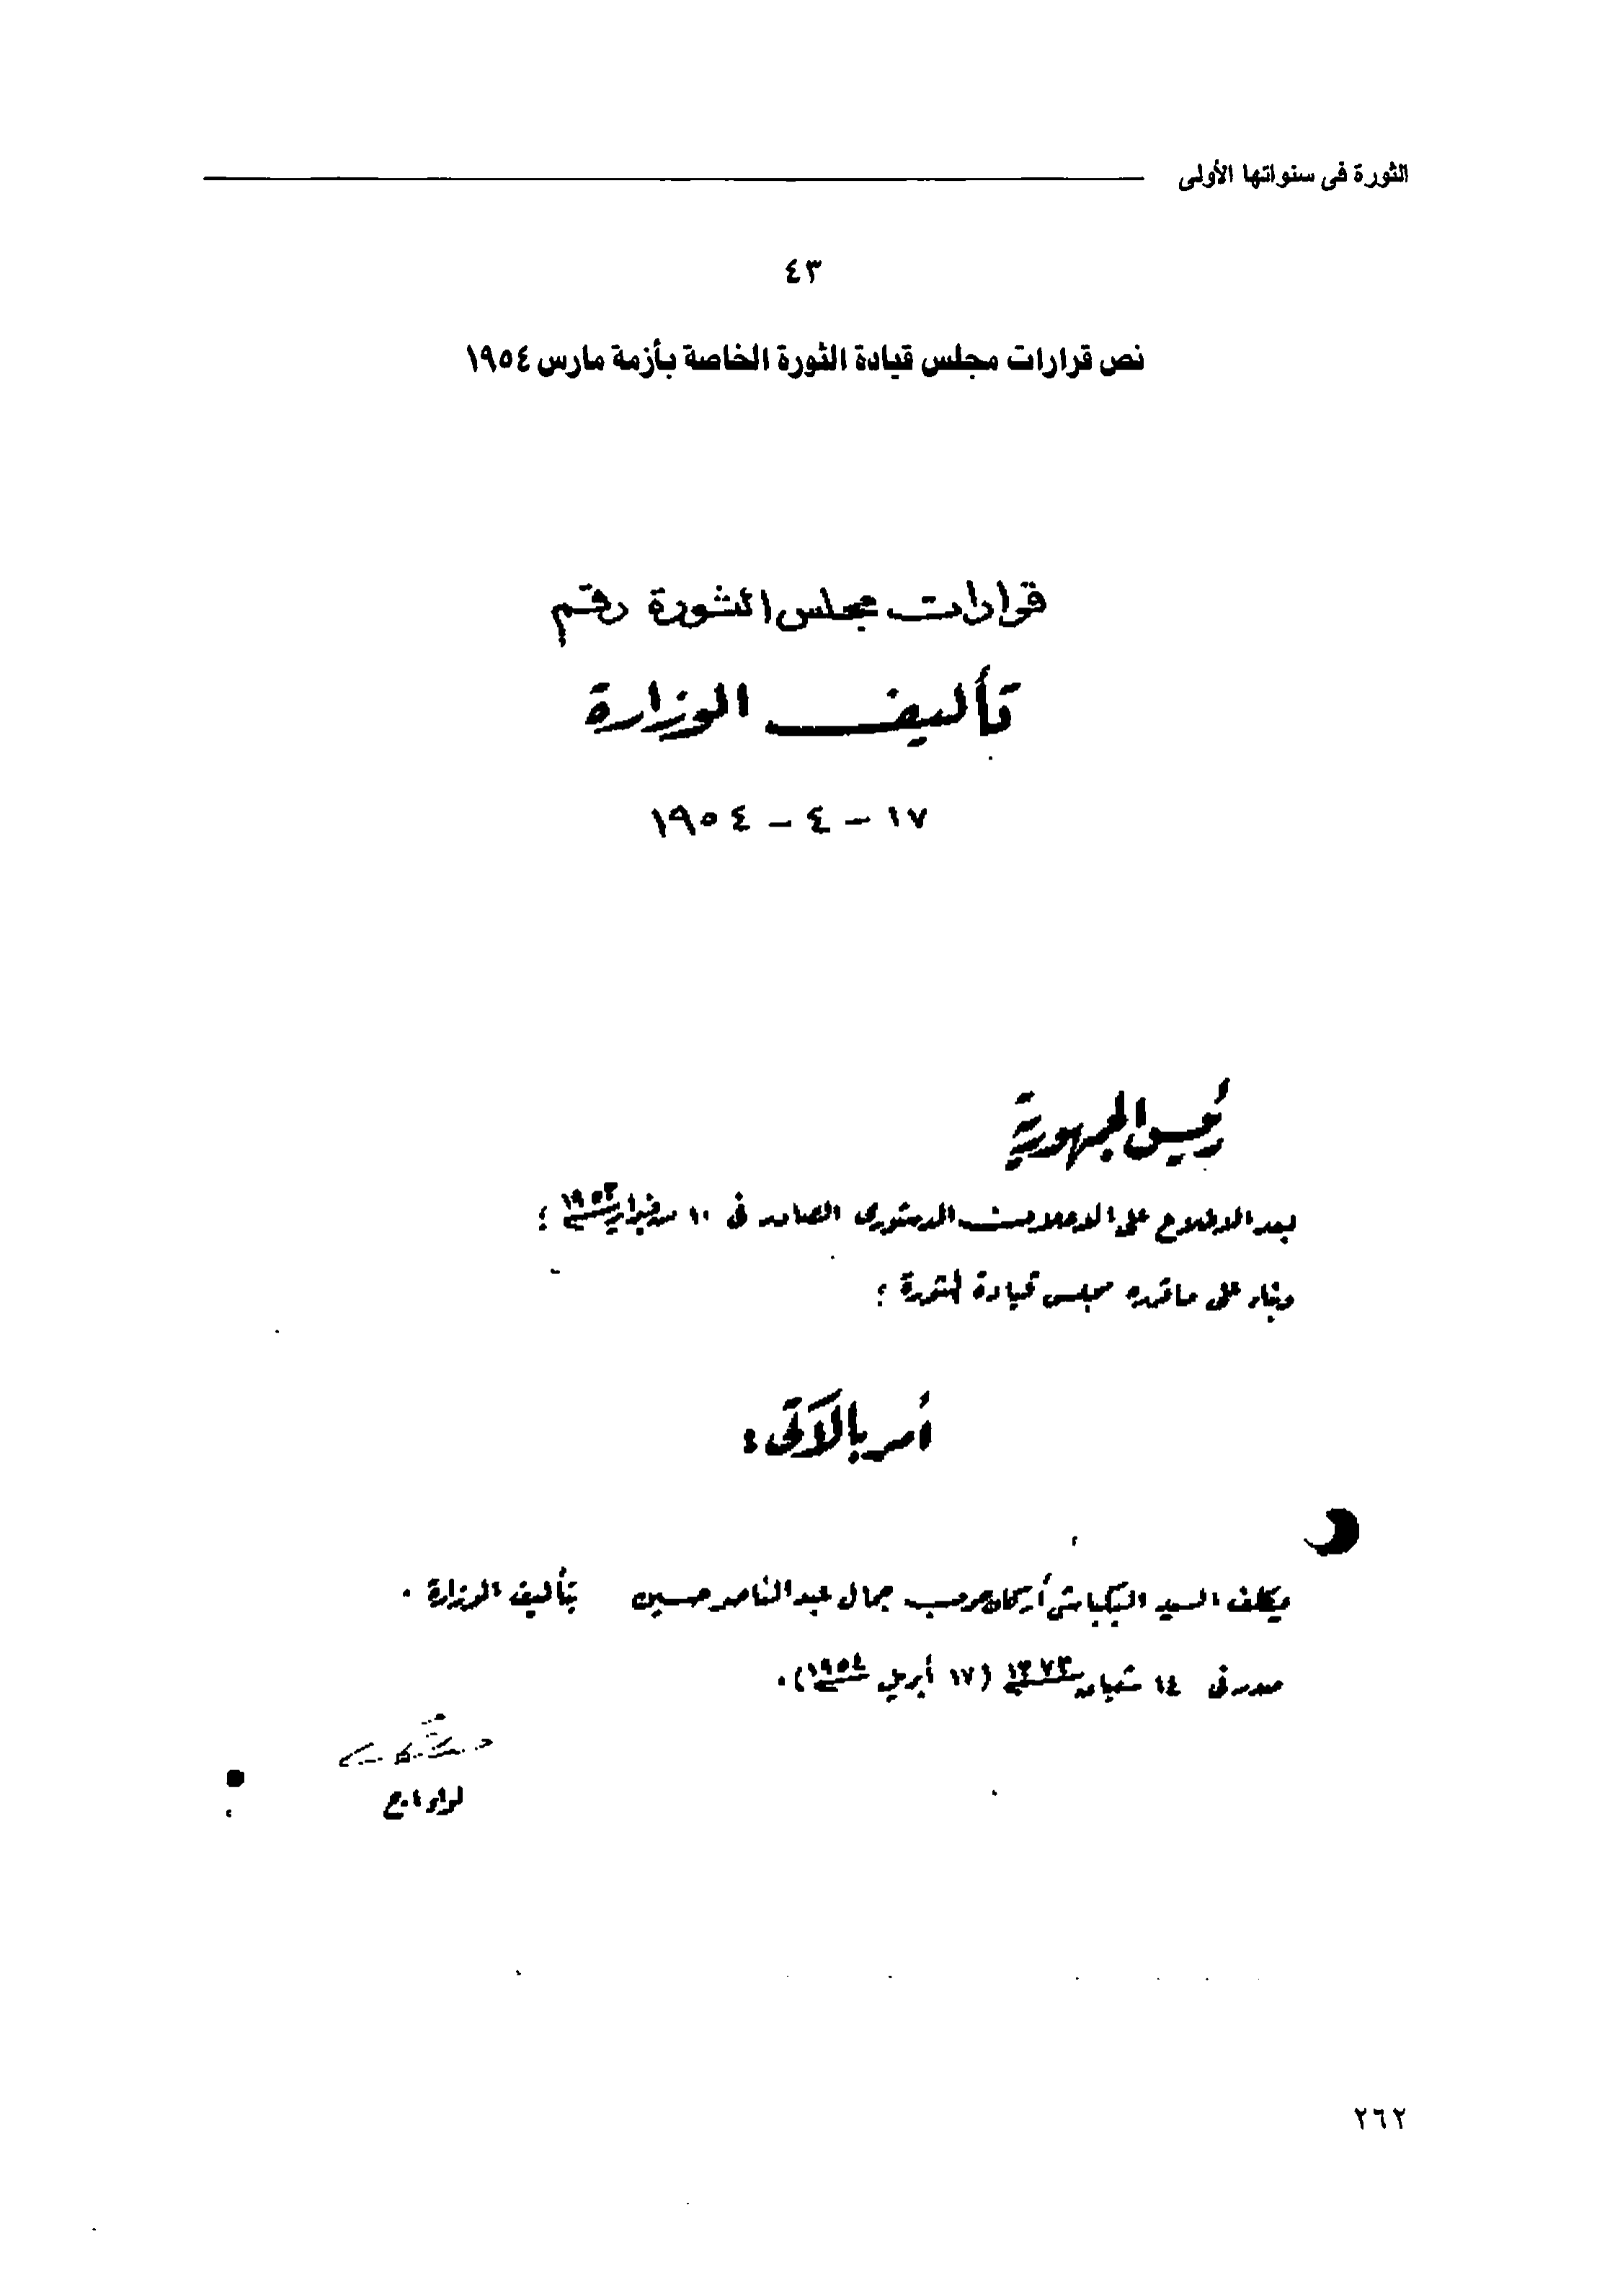 الثورة فى سنواتها الأولى
٤٣
نص قرارات مجلس قيادة الثورة الخاصة بأزمة مارس ١٩٥٤
قرارات مجلس الثورة رقم
تأليف الوزارة
١٧ - ٤ - ١٩٥٤
رئيس الجمهورية
بعد الاطلاع على الاعلان الدستورى الصادر فى ١٠ من فبراير سنة ١٩٥٣ ؛
وبناء على ما قرره مجلس قيادة الثورة ؛
أمر بالآتى :
يكلف السيد البكباشى أركان حرب جمال عبد الناصر حسين بتأليف الوزارة .
صدر فى ١٤ شعبان سنة ١٣٧٣ (١٧ أبريل سنة ١٩٥٤) .
لواء ا.ح
٢٦٢